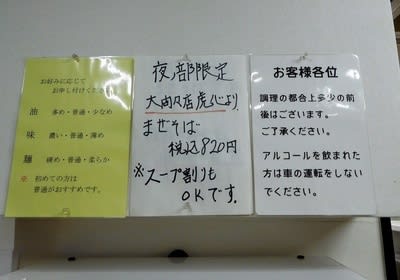 お好みに応じて
お申し付けください
油 多め・普通・少なめ
味 濃い・普通・薄め
麺 硬め・普通・柔らか
※ 初めての方は
普通がおすすめです。
夜ノ部限定
まぜそば
税込820円
※スープ割りも
OKです。
お客様各位
調理の都合上多少の前
後はございます。
ご了承ください。
アルコールを飲まれた
方は車の運転をしない
でください。